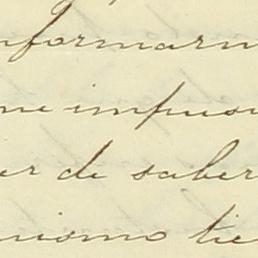 nformarm
me impuso
er de saber
nismo tie